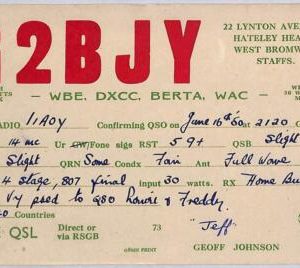 2BJY
22 LYNTON AVE
HATELEY HEA
WEST BROMW
STAFFS.
— WBE, DXCC, BERTA, WAC —
ADIO I1AOY Confirming QSO on June 16th '60 at 2120
14 mc Ur CW/Fone sigs RST 59+ QSB Slight
Slight QRN Some Condx Fair Ant Full Wave
4 stage, 807 final input 30 watts. RX Home Bu
Vy psed to QSO
& Freddy.
0 Countries "Jeff"
QSL Direct or via RSGB 73 GEOFF JOHNSON